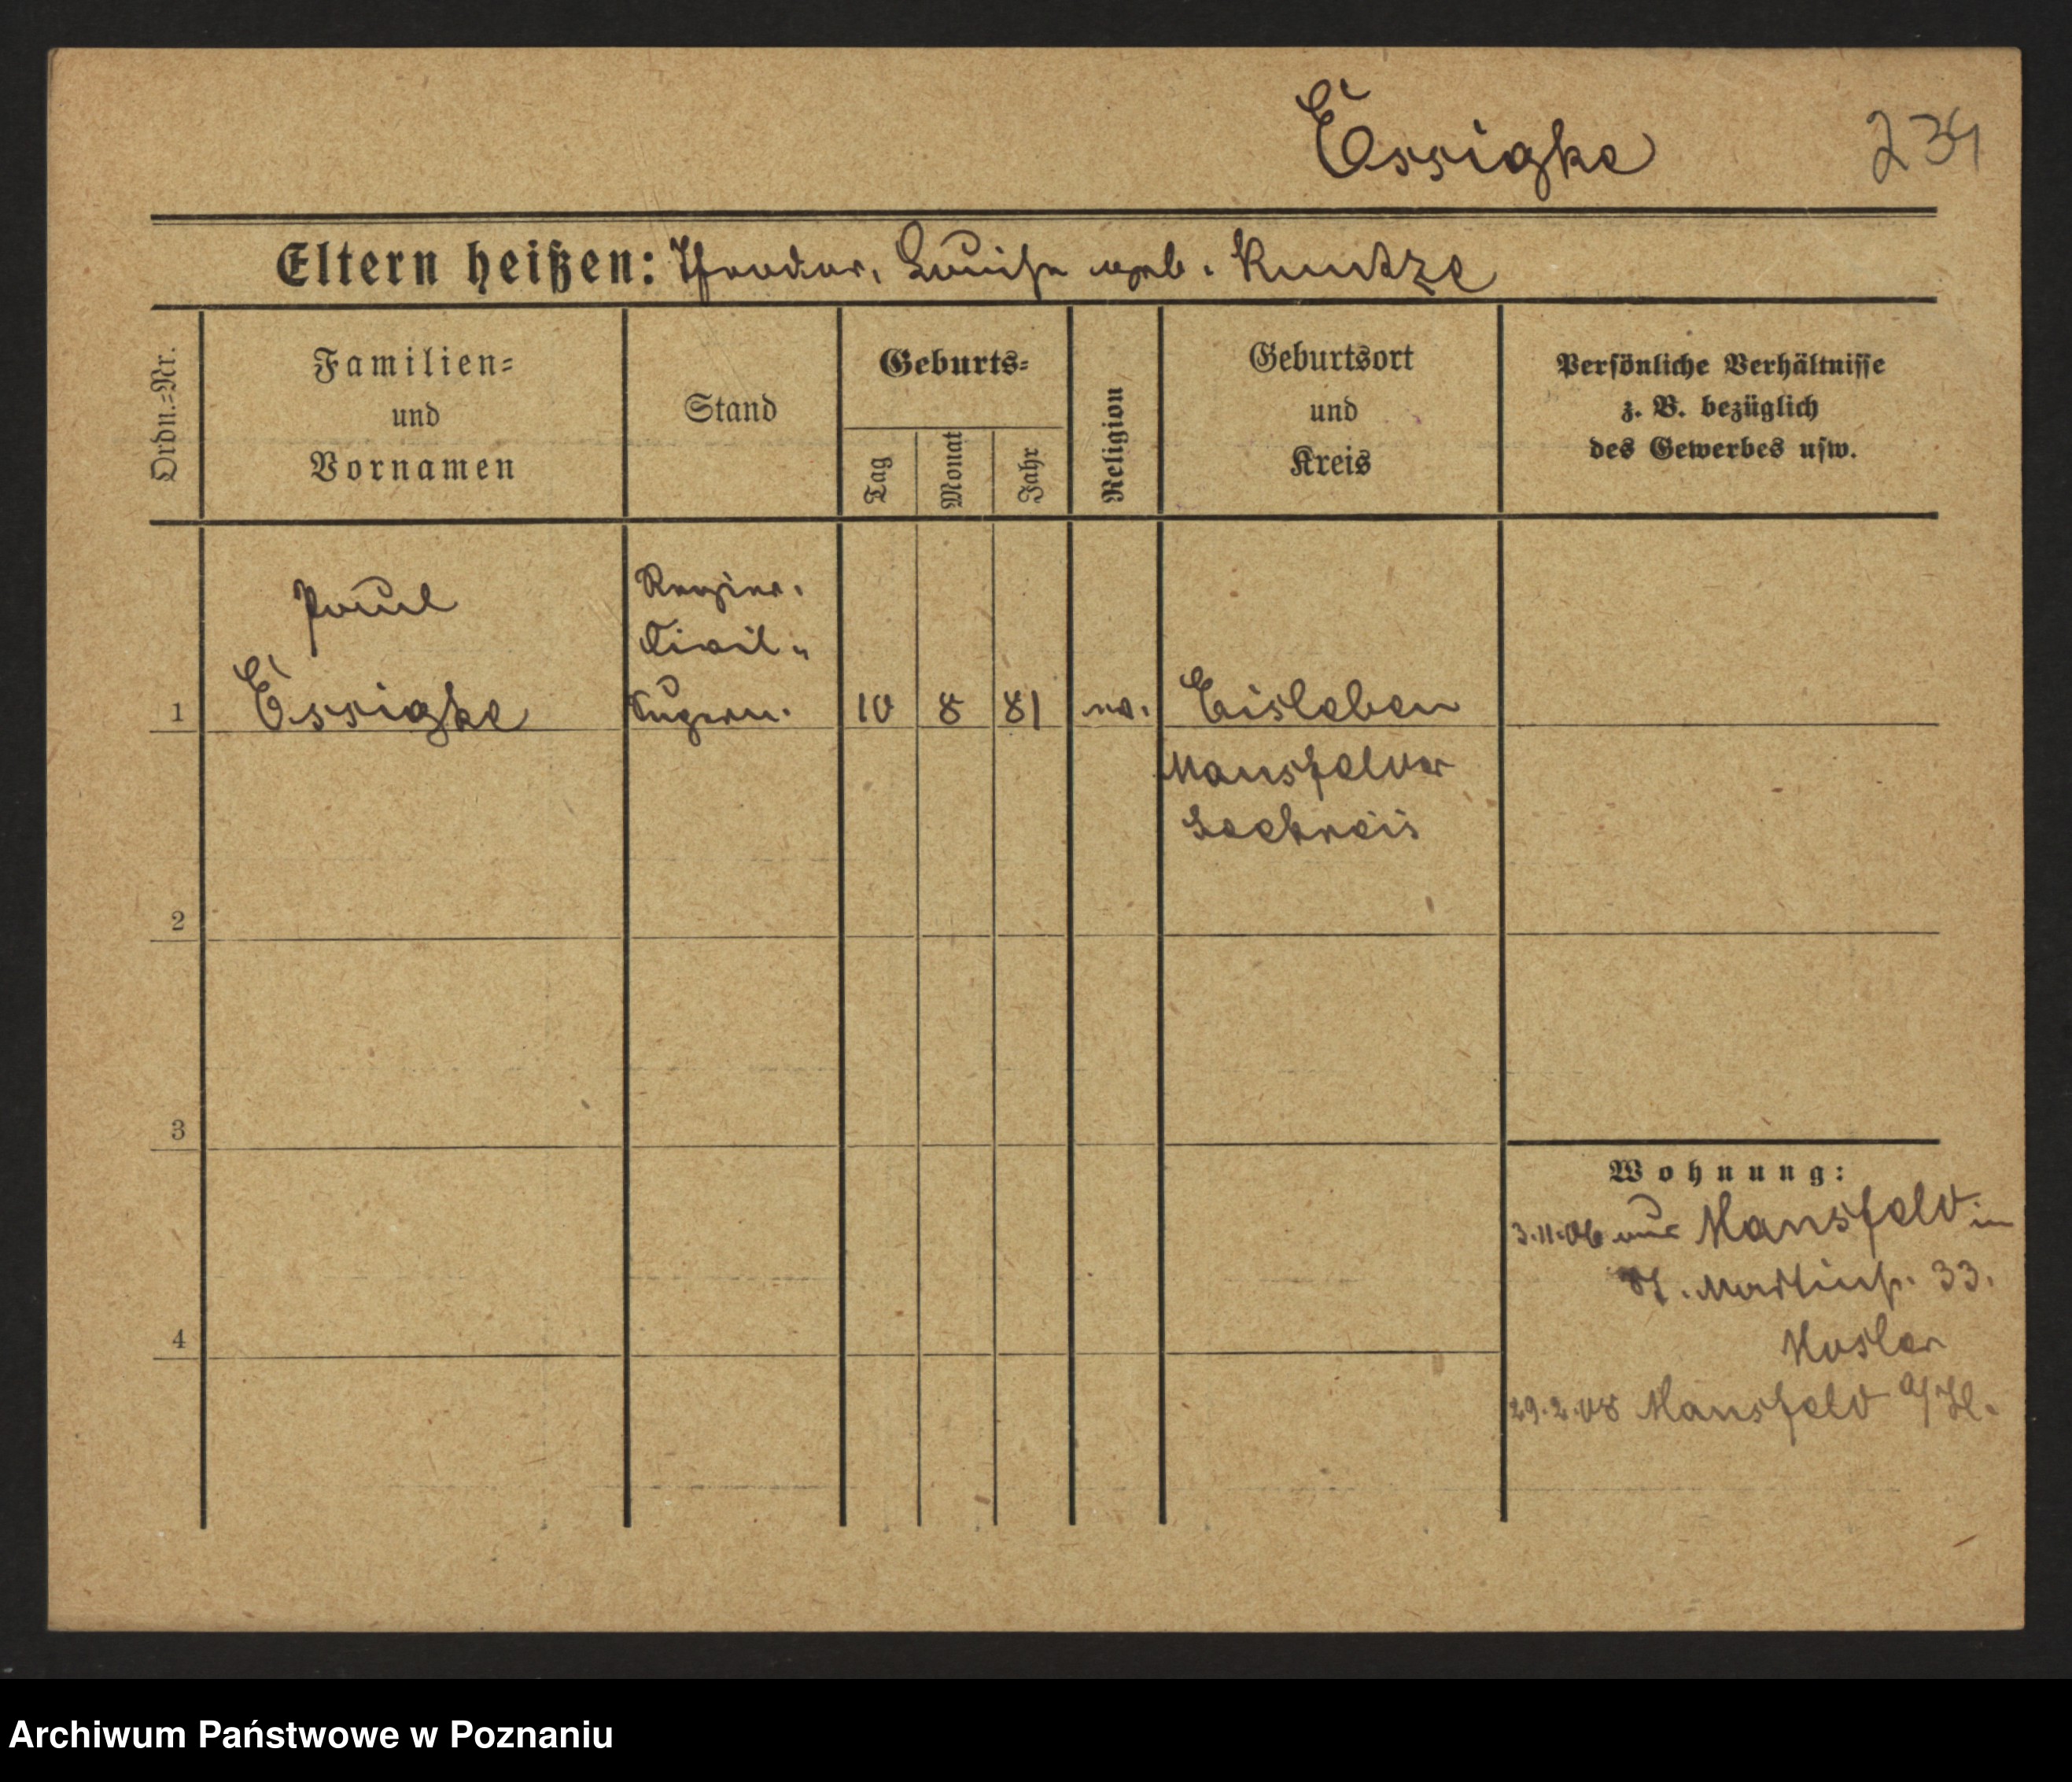 Essigke 234
Eltern heißen: Theodor, Louise geb. Kuntze
Ordn.=Nr.
Familien=
und
Vornamen
Stand
Geburts=
Tag
Monat
Jahr
Religion
Geburtsort
und
Kreis
Persönliche Verhältnisse
z. B. bezüglich
des Gewerbes usw.
Paul
Essigke
Regier.
Civil-
Supern.
1
10 8 81 ev. Eisleben
Mansfelder
Seekreis
2
3
4
Wohnung:
3.11.06 aus Mansfeld in
St. Martinst. 33.
29.2.08 Mansfeld a/H.
Archiwum Państwowe w Poznaniu